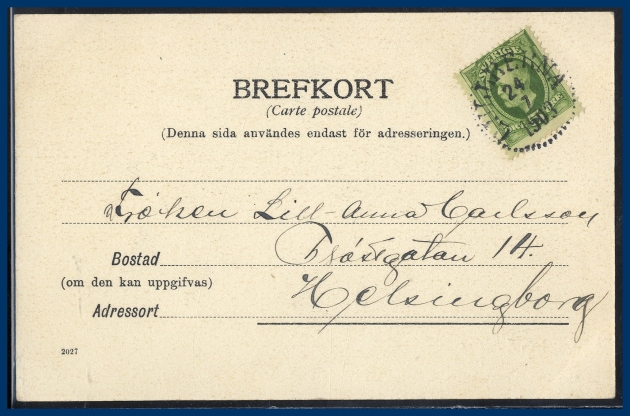 BREFKORT
(Carte postale)
(Denna sida användes endast för adresseringen.)
SVERIGE
24
7
Fröken Lill-Anna Carlsson
Bostad
14.
(om den kan uppgifvas)
Helsingborg
Adressort
2027